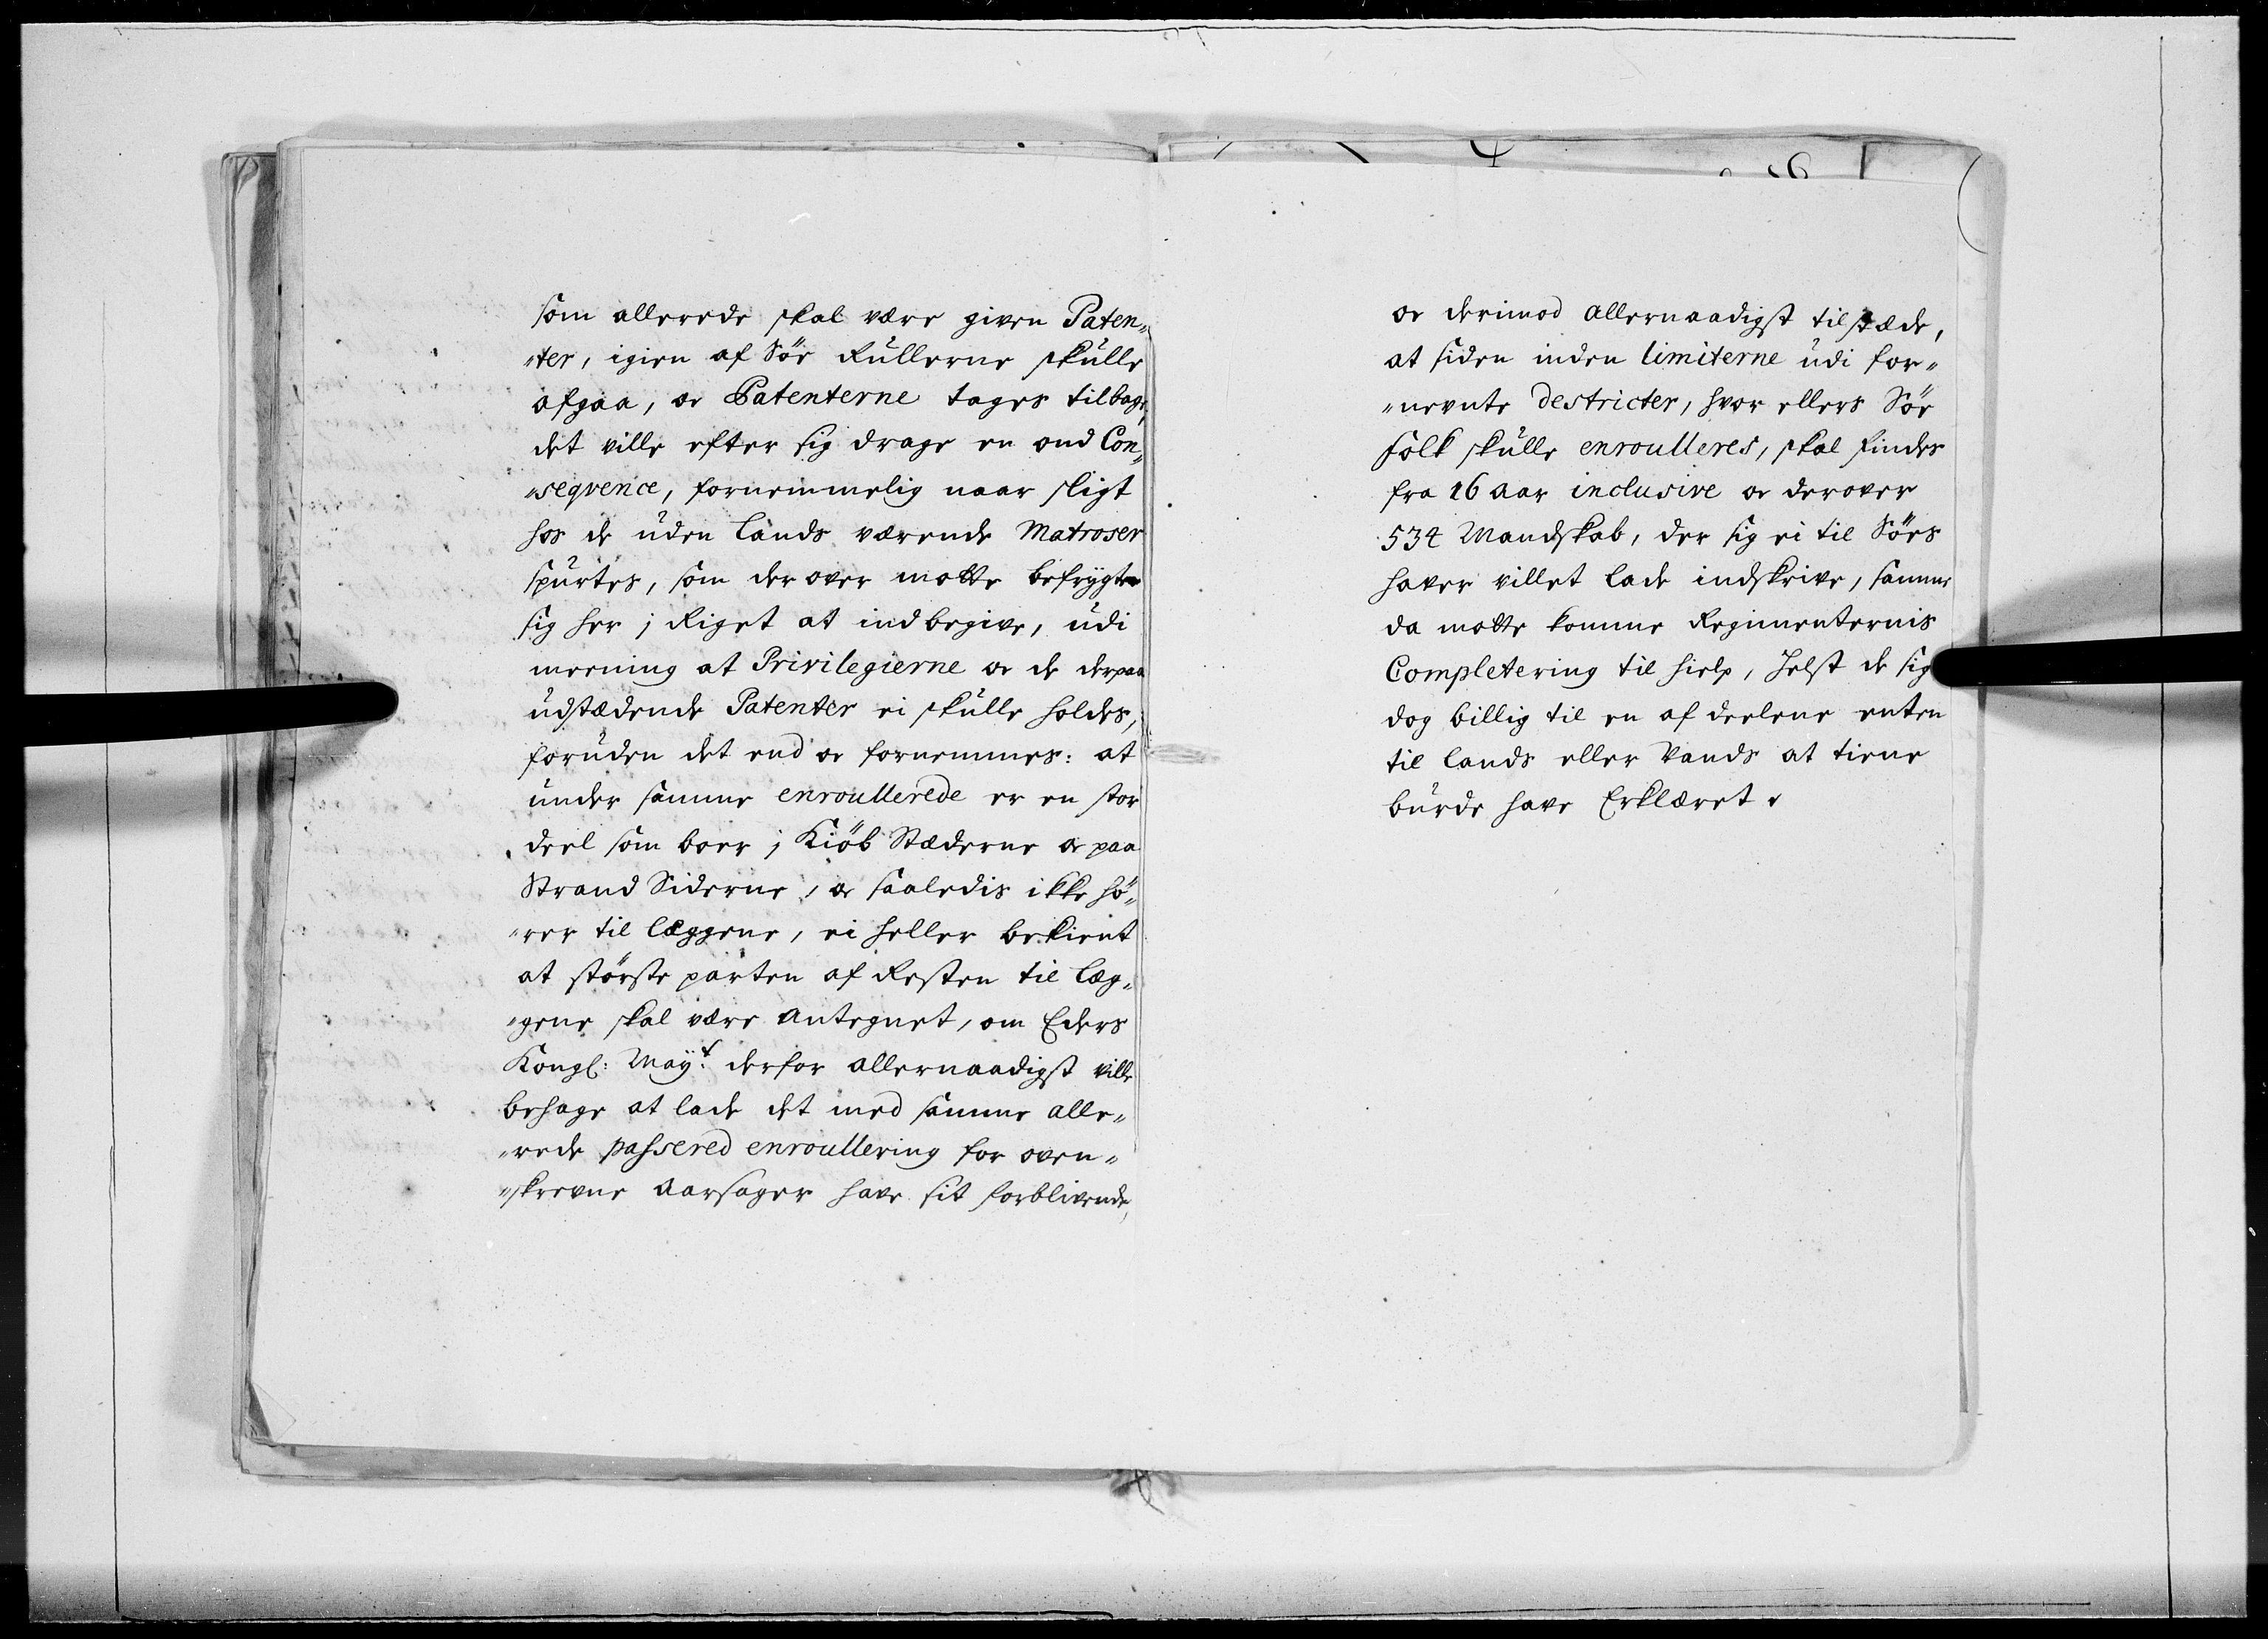 som allerede skal være given Paten„
„ter, igien af Söe Rullerne skulle
afgaa, oc Patenterne tages tilbage,
det ville efter sig drage en ond Con„
„seqvence, fornemmelig naar sligt
hos de uden lands værende Matroser
spurtes, som der over motte befrygte
sig her j Riget at indbegive, udi
meening at Privilegierne oc de derpaa
udstædende Patenter ei skulle holdes,
foruden det end oc fornemmes: at
under samme enroullerede er en stor
deel som boer j Kiöb Stæderne oc paa
Strand Siderne, oc saaledis ikke hö„
„rer til læggene, ei heller bekient
at störste parten af Resten til læg„
„gene skal være Antegnet, om Eders
Kongl: Mayt. derfor allernaadigst ville
behage at lade det med samme alle„
„rede passered enroullering for oven„
„skrevne Aarsager have sit forblivende,
oc derimod allernaadigst tilstæde,
at siden inden limiterne udi for„
„nevnte Destricter, hvor ellers Söe
folk skulle enroulleres, skal findes
fra 16 aar inclusive oc derover
534 Mandskab, der sig ei til Söes
haver villet lade indskrive, samme
da motte komme Regimenternis
Completering til hielp, helst de sig
dog billig til en af deelene enten
til lands eller Vands at tiene
burde have Erklæret